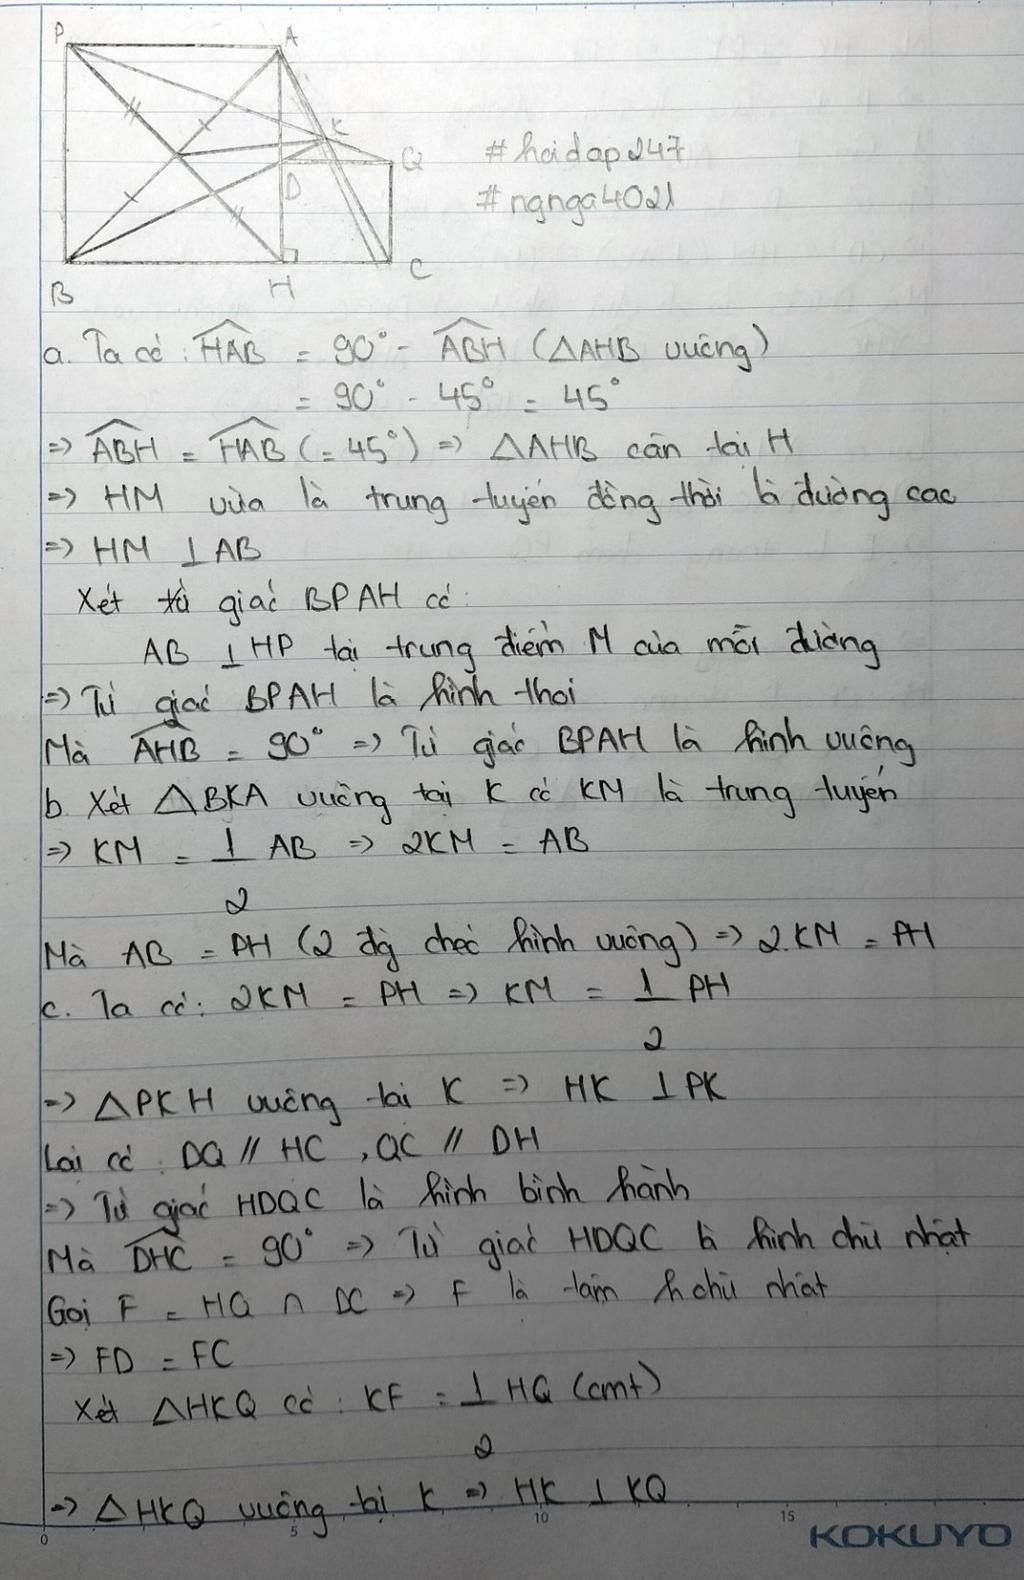 P A
K
# hoidap247
Q
D
# ngnga4021
B H C
a. Ta có : HAB = 90° - ABH (△AHB vuông)
= 90° - 45° = 45°
=> ABH = HAB (= 45°) => △AHB cân tại H
=> HM vừa là trung tuyến đồng thời là đường cao
=> HM ⊥ AB
Xét tứ giác BPAH có:
AB ⊥ HP tại trung điểm M của mỗi đường
=> Tứ giác BPAH là hình thoi
Mà AHB = 90° => Tứ giác BPAH là hình vuông
b. Xét △BKA vuông tại K có KM là trung tuyến
=> KM = 1/2 AB => 2KM = AB
Mà AB = PH (2 đg chéo hình vuông) => 2.KM = PH
c. Ta có: 2KM = PH => KM = 1/2 PH
=> △PKH vuông tại K => HK ⊥ PK
Lại có : DQ // HC , QC // DH
=> Tứ giác HDQC là hình bình hành
Mà DHC = 90° => Tứ giác HDQC là hình chữ nhật
Gọi F = HQ ∩ DC => F là tâm h.chữ nhật
=> FD = FC
Xét △HKQ có : KF = 1/2 HQ (cmt)
=> △HKQ vuông tại K => HK ⊥ KQ
0 5 10 15
KOKUYO